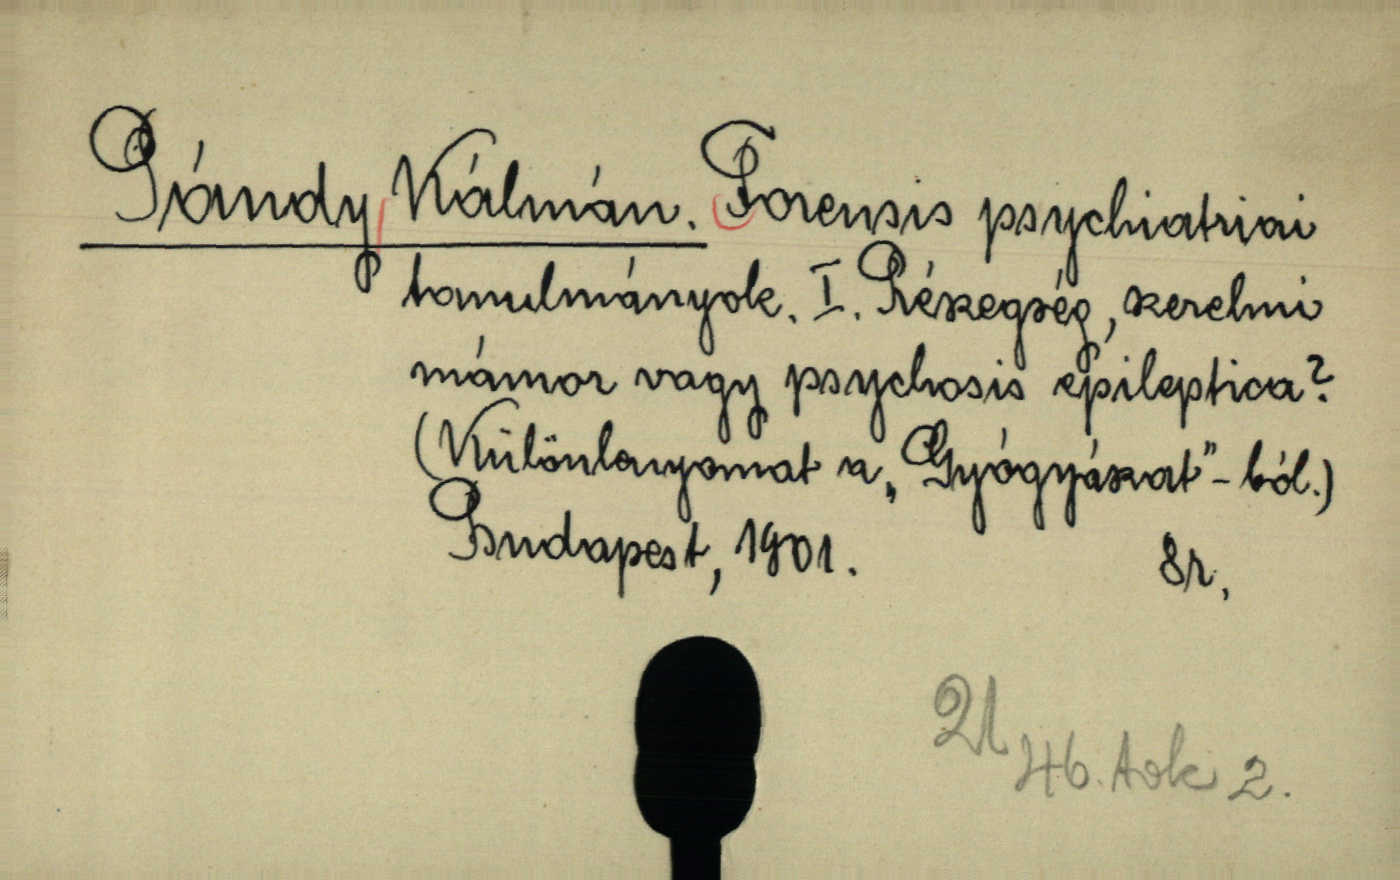 Pándy Kálmán. Forensis psychiatriai
tanulmányok. I. Részegség, szerelmi
mámor vagy psychosis epileptica?
(Különlenyomat a „Gyógyászat"-ból.)
Budapest, 1901. 8r.
46. tok 2.